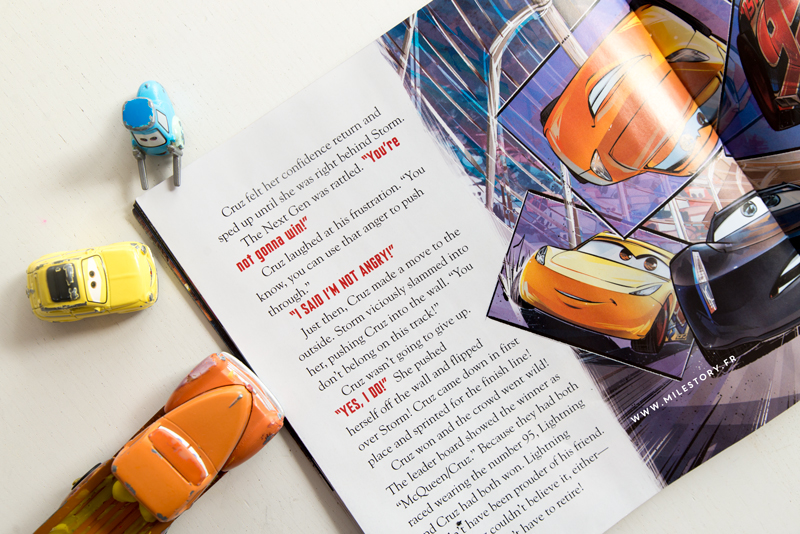 Cruz felt her confidence return and
sped up until she was right behind Storm.
The Next Gen was rattled. "You're
not gonna win!"
Cruz laughed at his frustration. "You
know, you can use that anger to push
through."
"I SAID I'M NOT ANGRY!"
Just then, Cruz made a move to the
outside. Storm viciously slammed into
her, pushing Cruz into the wall. "You
don't belong on this track!"
Cruz wasn't going to give up.
"YES, I DO!" She pushed
herself off the wall and flipped
over Storm! Cruz came down in first
place and sprinted for the finish line!
Cruz won and the crowd went wild!
The leader board showed the winner as
"McQueen/Cruz." Because they had both
raced wearing the number 95, Lightning
and Cruz had both won. Lightning
have been prouder of his friend.
couldn't believe it, either—
have to retire!
WWW.MILESTORY.FR